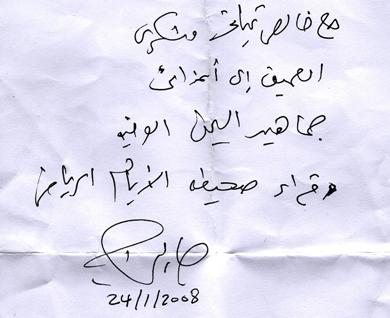 مع خالص تحياتي وشكري
العميق إلى أعزائي
جماهير اليمن الوفيه
وقراء صحيفة الأيام الرياضي
24/1/2008